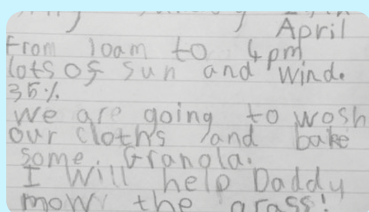 April
From 10am to 4pm
lots of sun and wind.
35%
We are going to wosh
our cloths and bake
some Granola.
I will help Daddy
mow the grass!